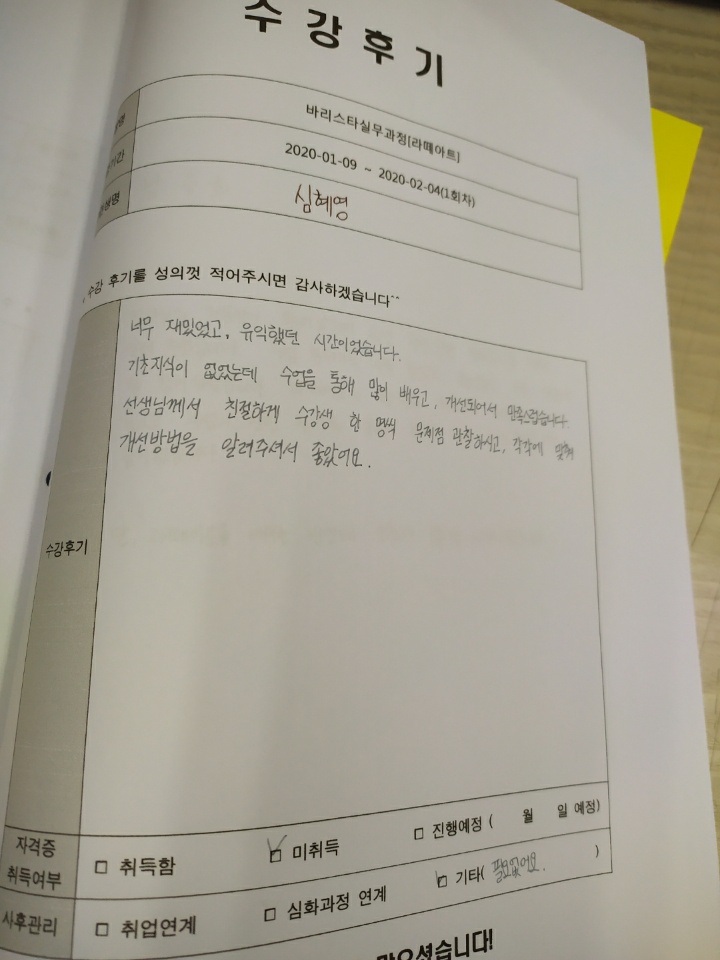 수강후기
바리스타실무과정[라떼아트]
2020-01-09 ~ 2020-02-04(1회차)
심혜영
수강 후기를 성의껏 적어주시면 감사하겠습니다^^
너무 재밌었고, 유익했던 시간이었습니다.
기초지식이 없었는데 수업을 통해 많이 배우고, 개선되어서 만족스럽습니다.
선생님께서 친절하게 수강생 한 명씩 문제점 관찰하시고, 각각에 맞춰
개선방법을 알려주셔서 좋았어요.
수강후기
자격증
취득여부
□ 취득함 ☑ 미취득 □ 진행예정 ( 월 일 예정)
사후관리 □ 취업연계 □ 심화과정 연계 ☑ 기타( 필요없어요. )